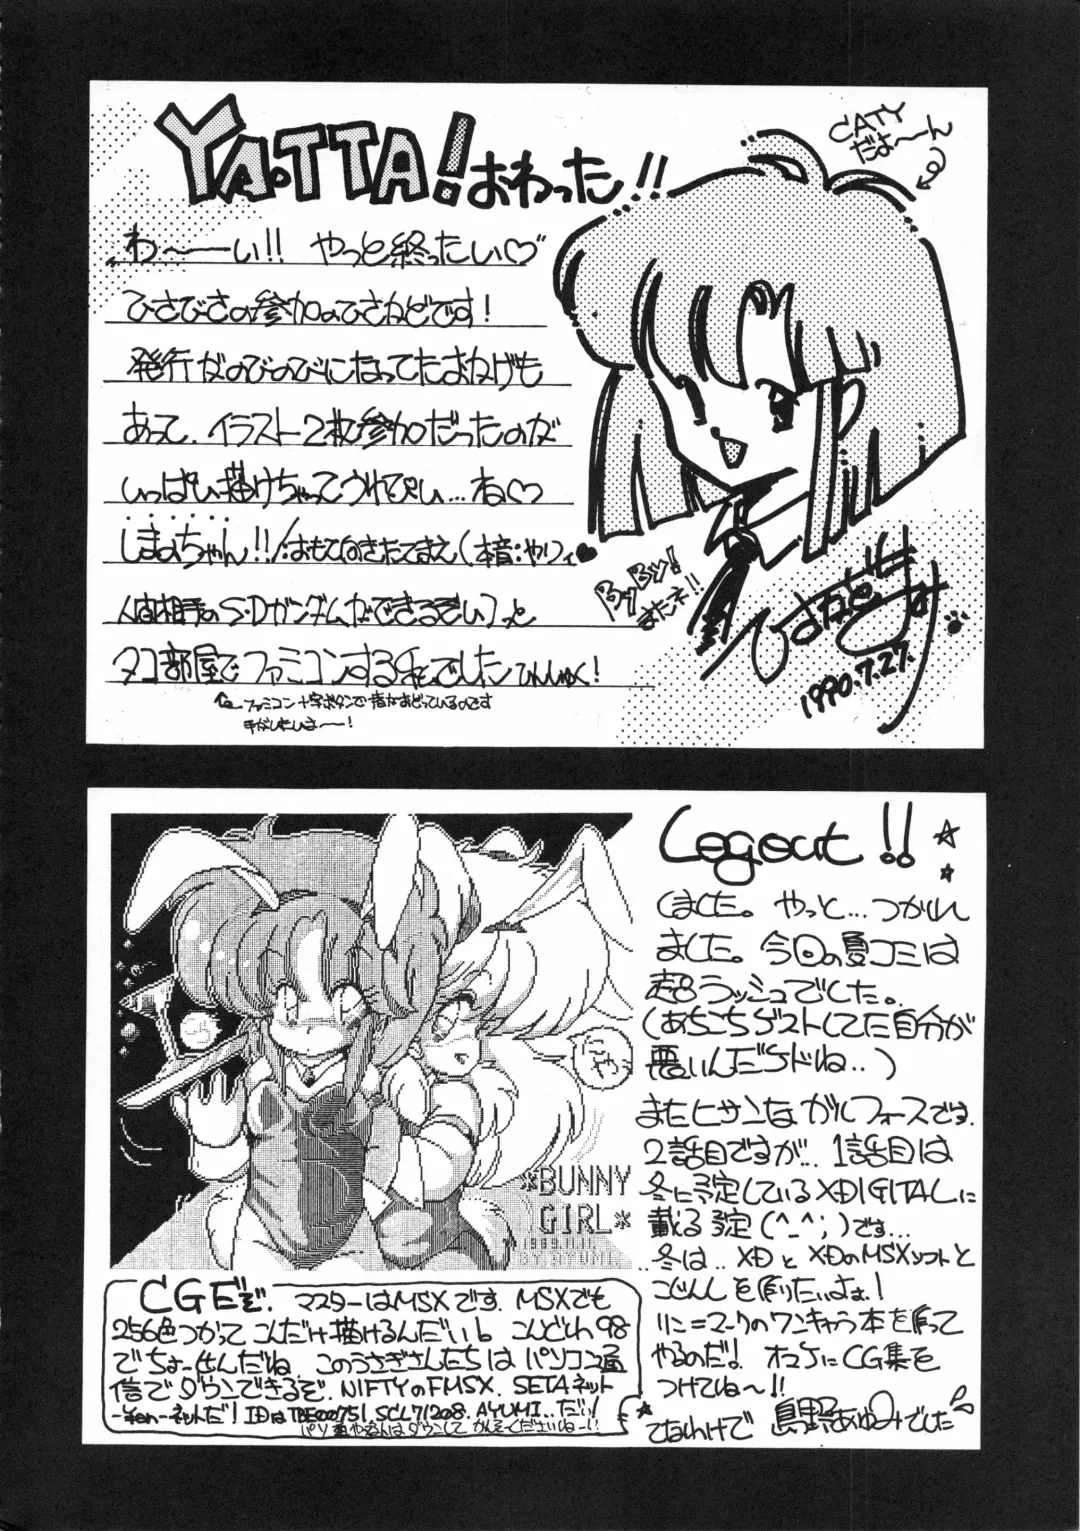 YA.TTA! おわった!!
CATY
だよ〜ん
わ〜ーい!! やっと終ったい♡
ひさびさの参加のひさねどです!
発行がのびのびになってたおかげも
あって、イラスト2枚参加だったのが
いっぱい描けちゃってうれぴい…ね♡
しまいちゃん!!/:おもてむきたてまえ(本音:やりィ♥
人間相手のS・Dガンダムができるぞい)っと
タコ部屋でファミコンする私でした ひんしゅく!
ファミコン十字ボタンで指がおどっているのです
手がいたいよ〜ー!
ByBy!
またネ!!
1990.7.27.
Logout!!
しました。やっと…つかれ
ました。今回の夏コミは
超ラッシュでした。
(あちこちゲストしてた自分が
悪いんだケドね..)
またヒサンなガルフォースです.
2話目ですが… 1話目は
冬に予定しているXDIGITALに
載る予定(^_^;)です…
..冬は..XDとXDのMSXソフトと
こじんしを創りたいよぉ!
リニ=マークのワンキャラ本を創って
やるのだ! オマケにCG集を
つけてね〜!!
てなわけで 島野あゆみでした
いやっ
*BUNNY
GIRL*
1989.11.11.
BY.AYUMI
CGだぞ. マスターはMSXです. MSXでも
256色つかってこんだけ描けるんだいb こんどわ98
でちょー仙んだね このうさぎさんたちは パソコン通
信でダウンできるぞ. NIFTYのFMSX. SETAネット
-ネットだ! IDはTBE00751. SCL71208. AYUMI..だい!
パソ通やるんはダウンして かんそーくださいねー!!